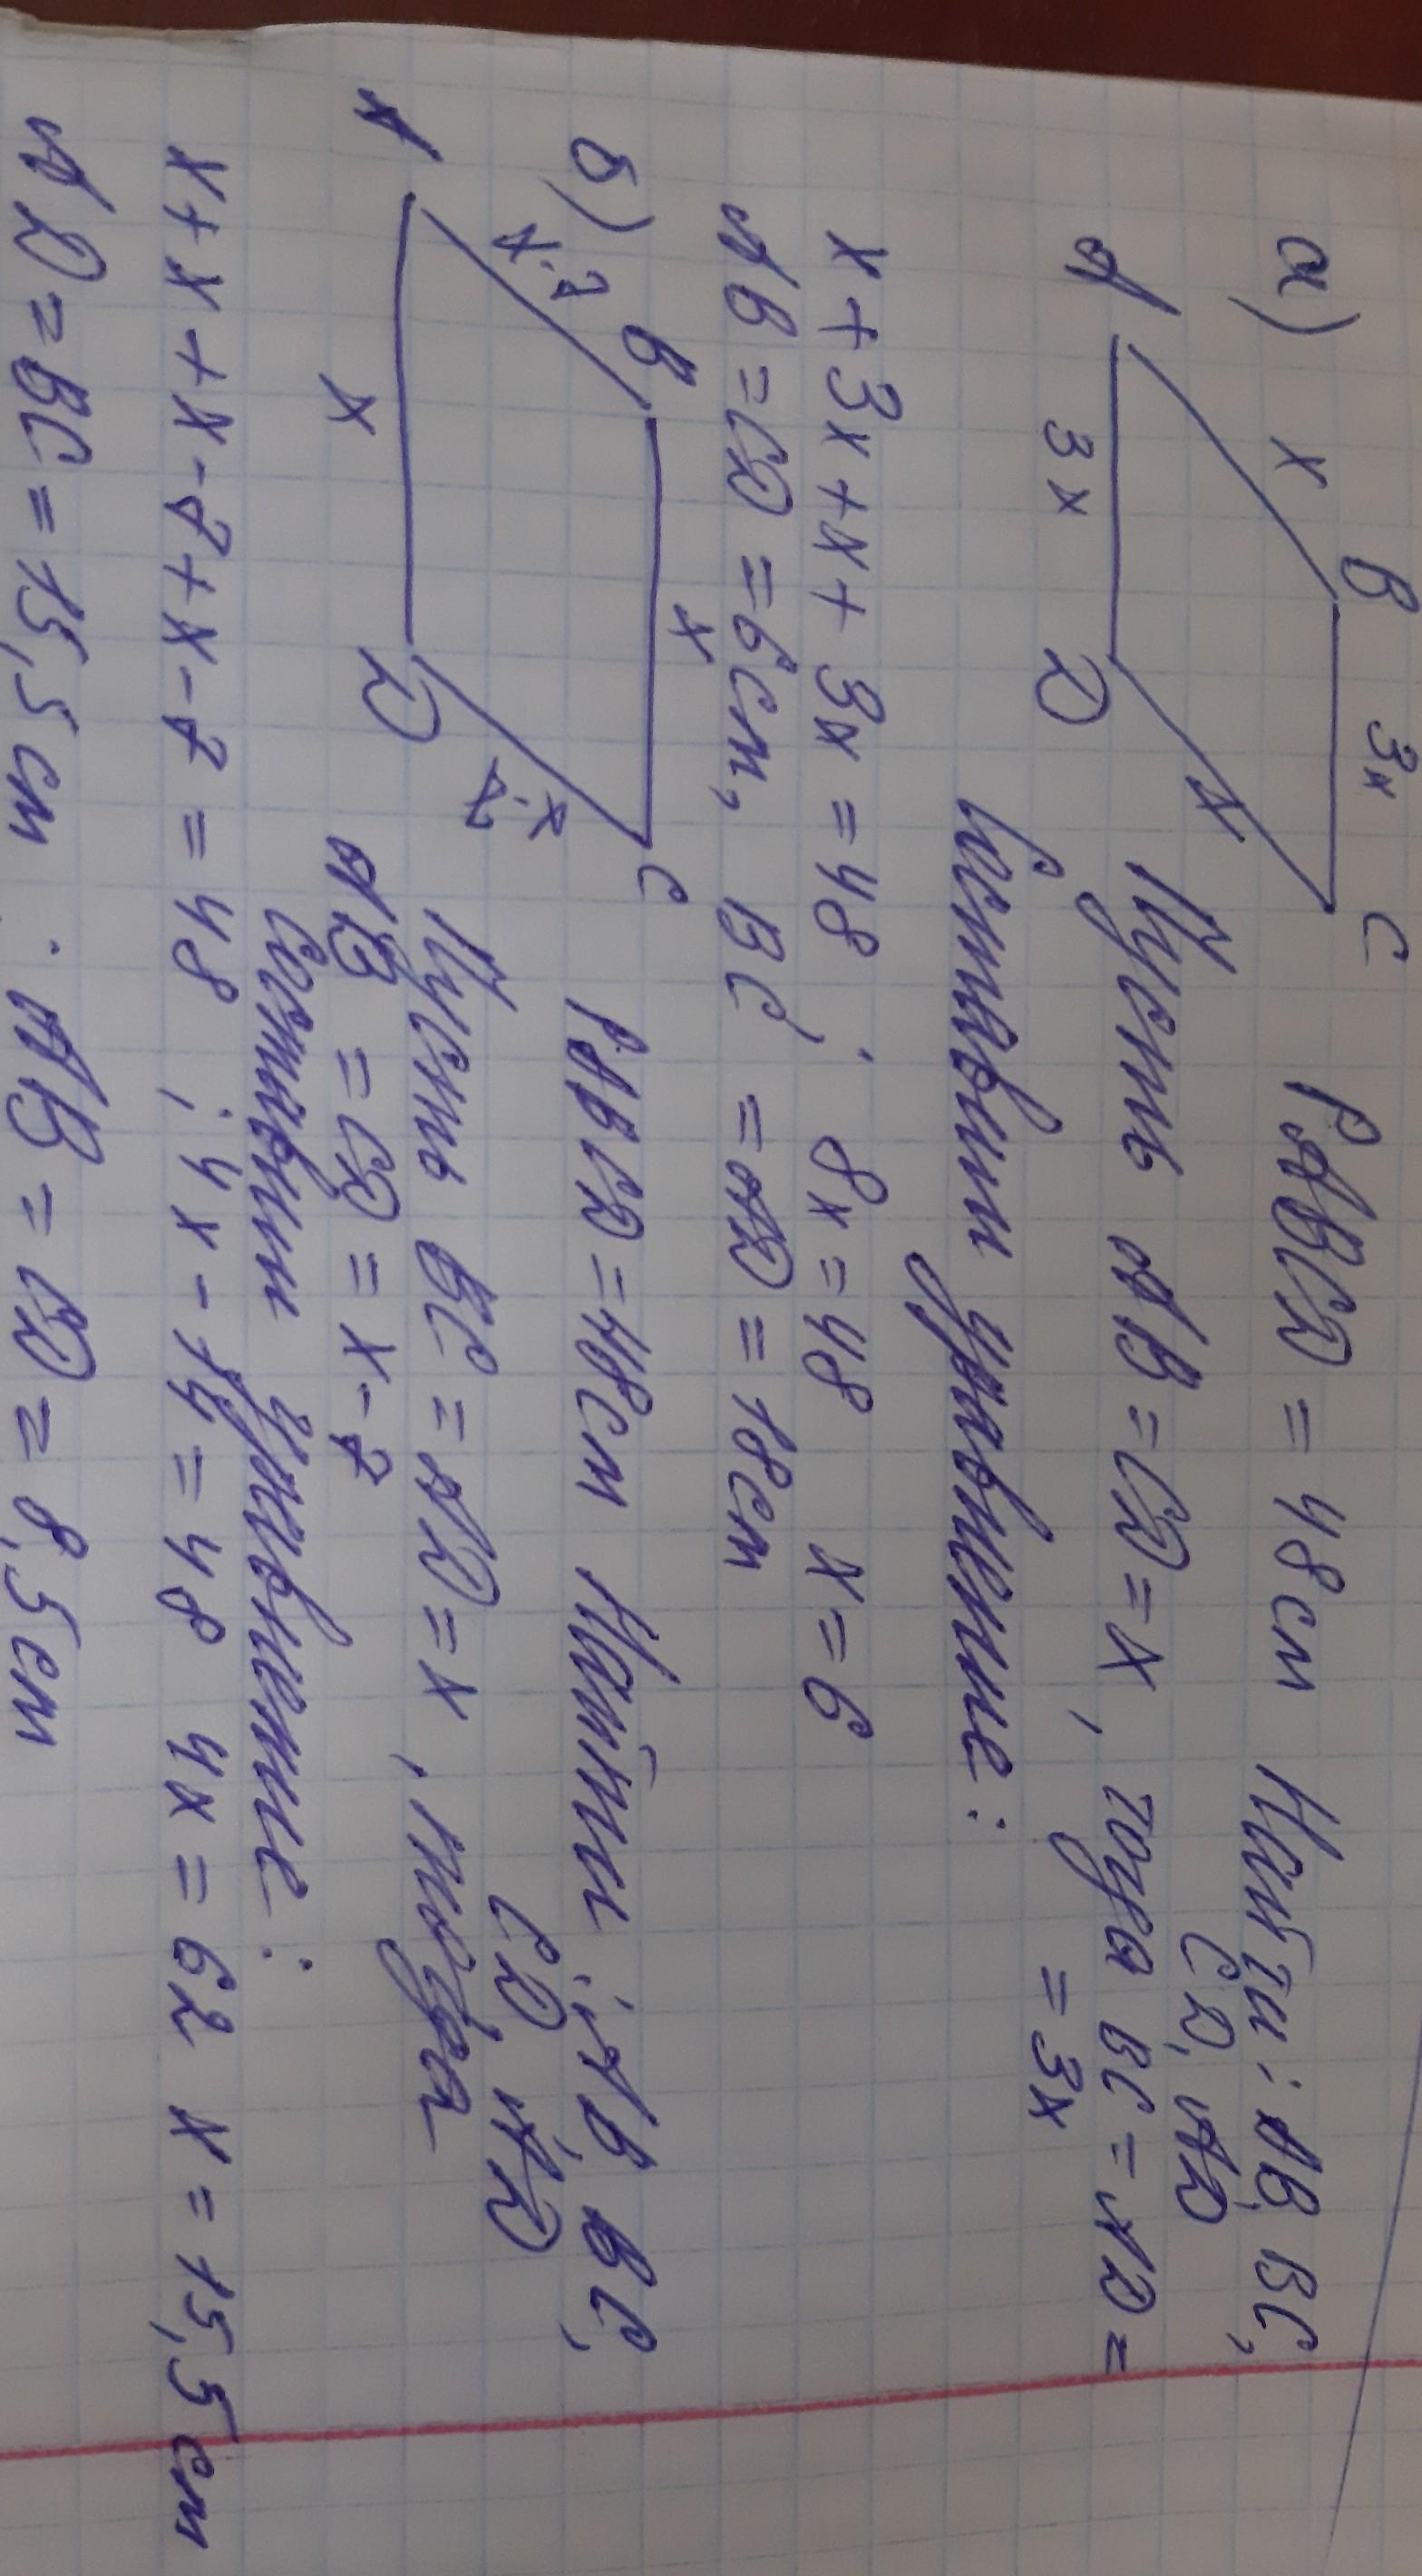 а) B 3x C PABCD = 48 см Найти: AB, BC,
x x CD, AD
A 3x D Пусть AB = CD = x, тогда BC = AD =
= 3x
Составим уравнение:
x + 3x + x + 3x = 48 ; 8x = 48 x = 6
AB = CD = 6 см, BC = AD = 18 см
б) B x C PABCD = 48 см Найти: AB, BC,
x-7 x-7 CD, AD
Пусть BC = AD = x, тогда
A x D AB = CD = x - 7
Составим уравнение:
x + x + x - 7 + x - 7 = 48 ; 4x - 14 = 48 4x = 62 x = 15,5 см
AD = BC = 15,5 см ; AB = CD = 8,5 см